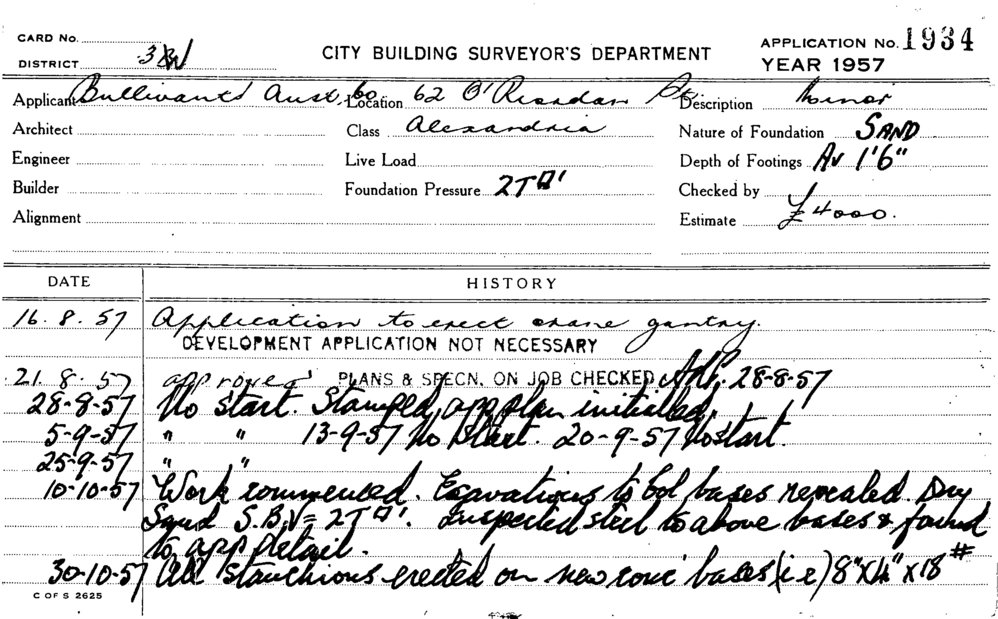 CARD No.
DISTRICT 3BW
CITY BUILDING SURVEYOR'S DEPARTMENT
APPLICATION No. 1934
YEAR 1957
Applicant Bullivants Aust. Co Location 62 O'Riordan St. Description Minor
Architect Class Alexandria Nature of Foundation SAND
Engineer Live Load Depth of Footings Av 1'6"
Builder Foundation Pressure 2T□' Checked by
Alignment Estimate £4000.
DATE HISTORY
16.8.57 Application to erect crane gantry.
DEVELOPMENT APPLICATION NOT NECESSARY
21.8.57 approved PLANS & SPECN. ON JOB CHECKED 28-8-57
28-8-57 No start. Stamped app plan initialled.
5-9-57 " " 13-9-57 No Start. 20-9-57 No start.
25-9-57 " "
10-10-57 Work commenced. Excavations to col bases revealed Dry
Sand S.B.V = 2T□'. Inspected steel to above bases & found
to app detail.
30-10-57 All stanchions erected on new conc bases (i.e) 8"x4"x18#
C OF S 2625